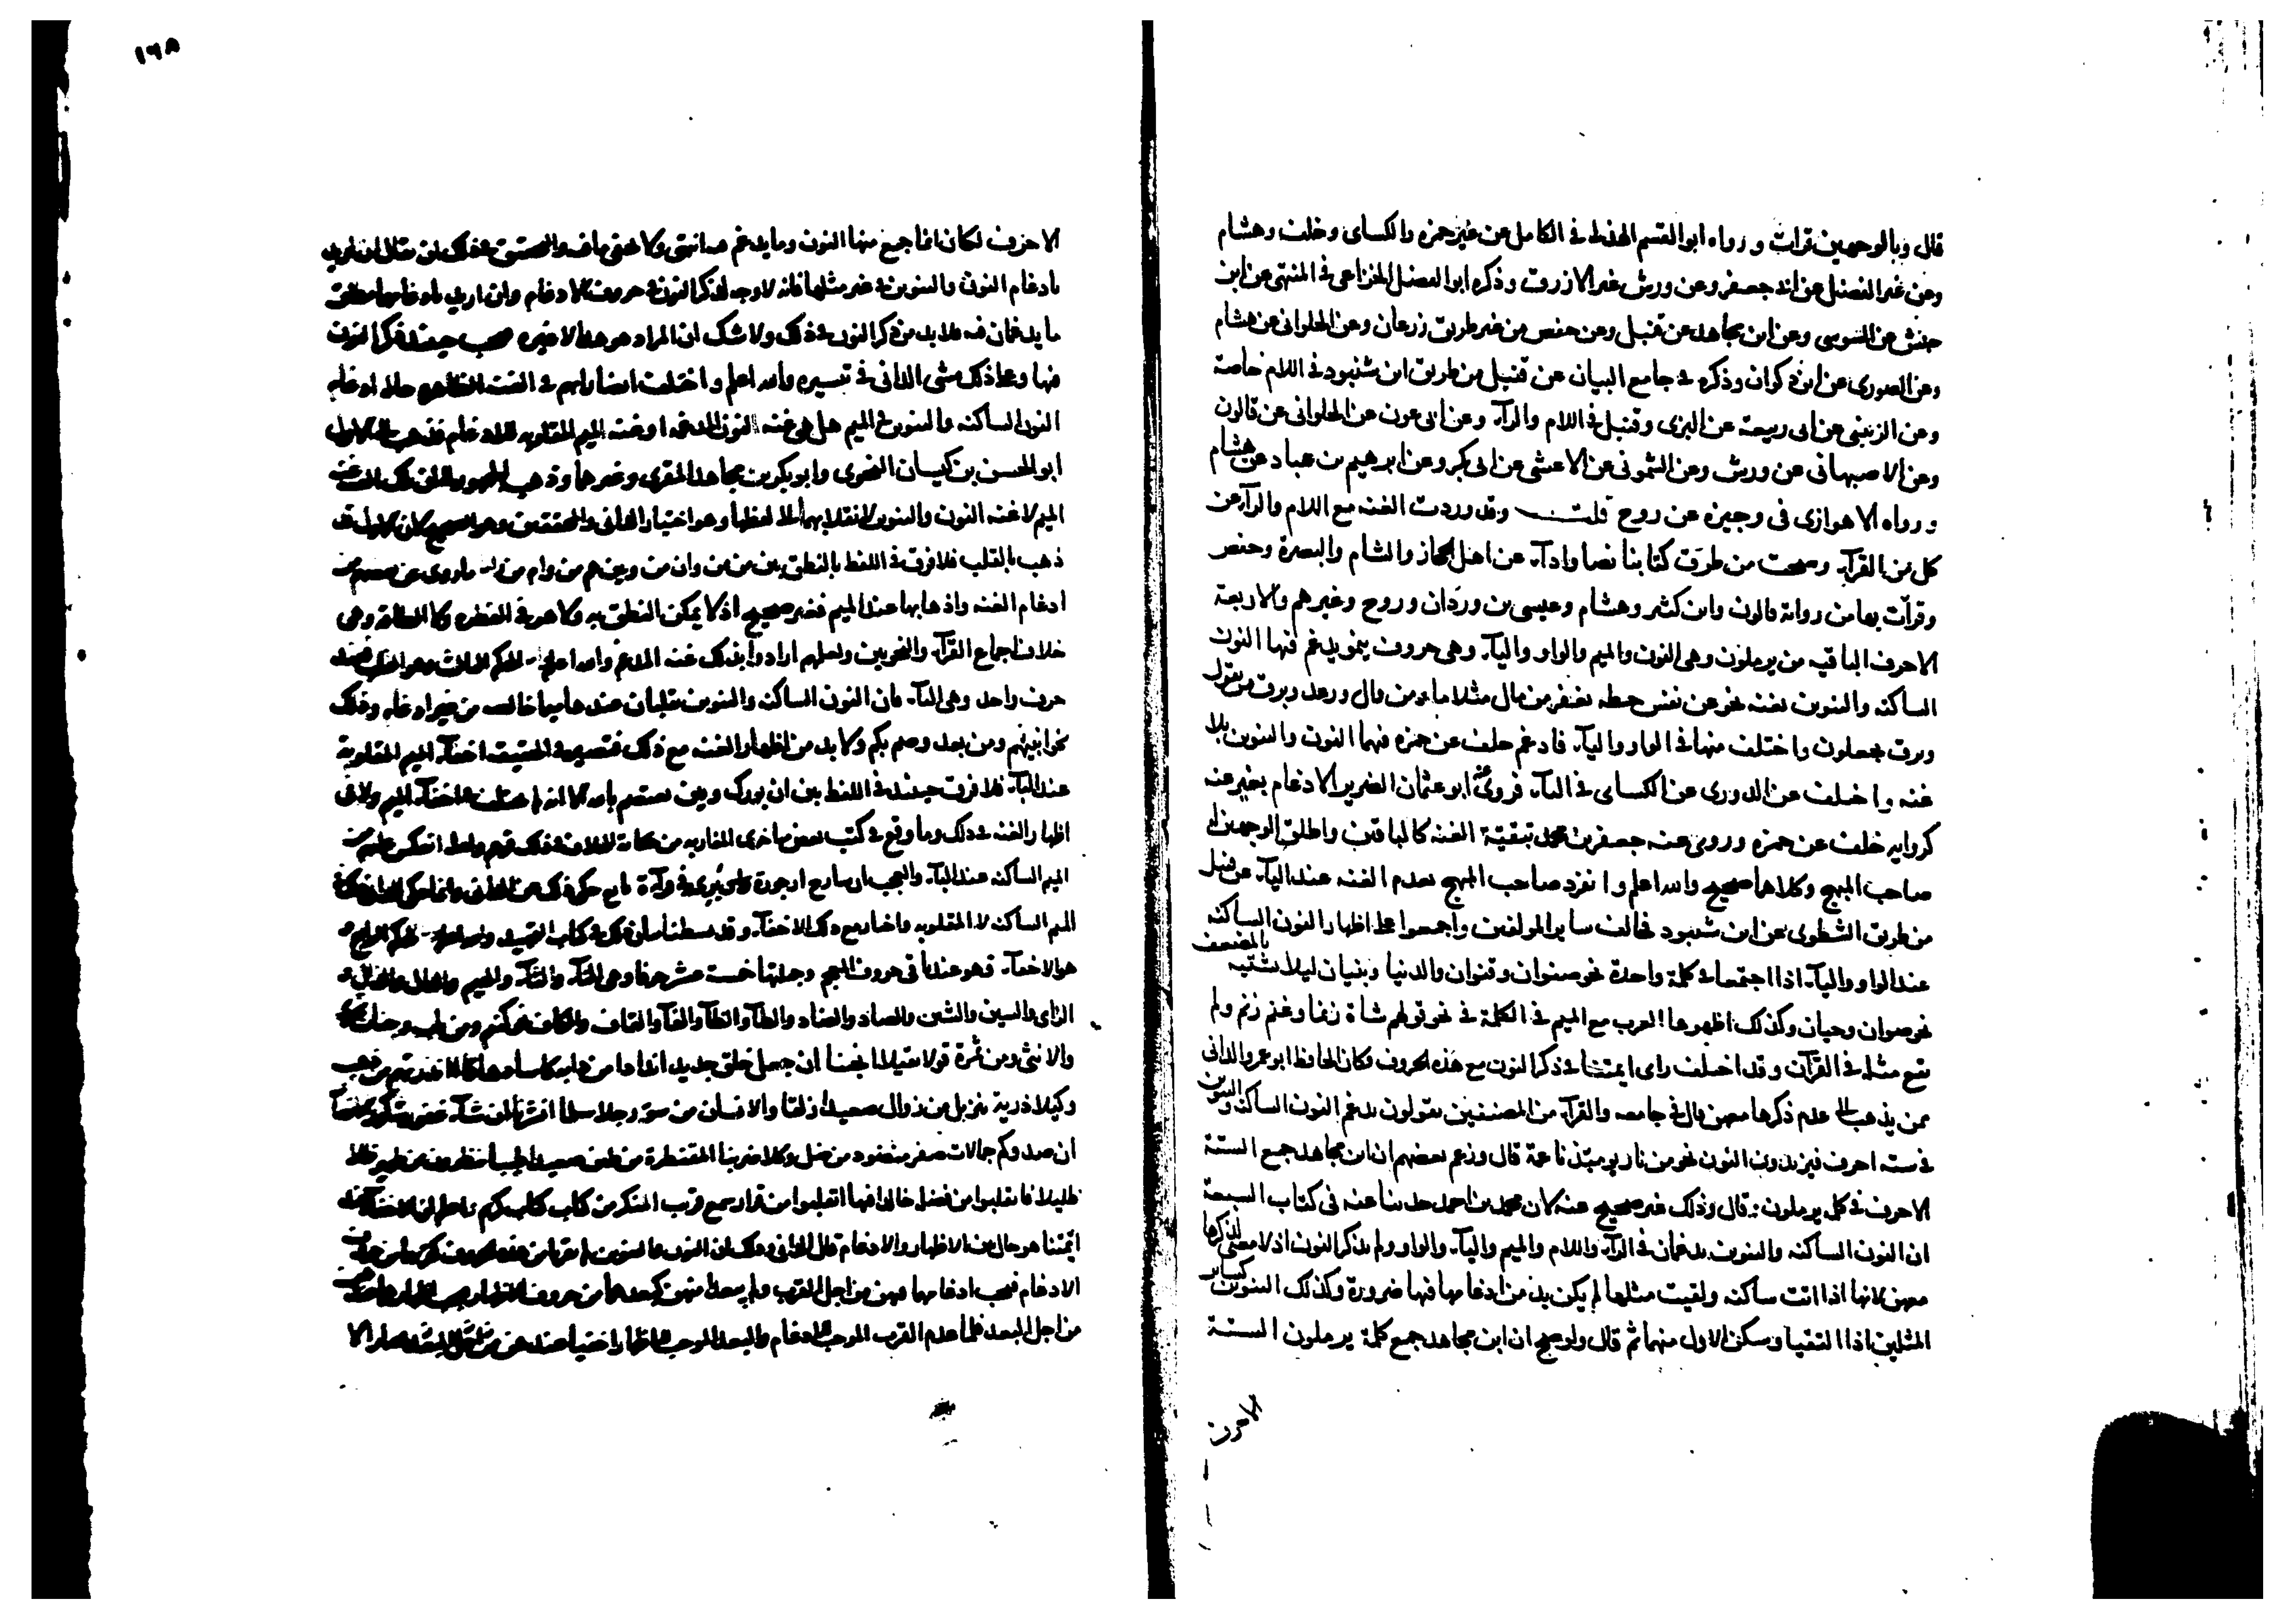 قال وبالوجهين قرات ورواه ابو القسم الهذلى فى الكامل عن غير حمزه والكساى وخلف وهشام
وعن غير الفضل عن ابى جعفر وعن ورش غير الازرق وذكره ابو الفضل الخزاعى فى المنتهى عن ابن
حبش عن السوسى وعن ابن مجاهد عن قنبل وعن حفص من غير طريق زرعان وعن الحلوانى عن هشام
وعن الصورى عن ابن ذكوان وذكره فى جامع البيان عن قنبل من طريق ابن شنبود فى اللام خاصة
وعن الزينبى عن ابى ربيعة عن البزى وقنبل فى اللام والرآء وعن ابى عون عن الحلوانى عن قالون
وعن الاصبهانى عن ورش وعن الشمونى عن الاعشى عن ابى بكر وعن ابرهيم بن عباد عن هشام
ورواه الاهوازى فى وجيزه عن روح قلت وقد وردت الغنه مع اللام والرآء عن
كل من القرآء وصحت من طرق كتابنا نصا وادآء عن اهل الحجاز والشام والبصرة وحفص
وقرأت بها من رواية قالون وابن كثير وهشام وعيسى بن وردان وروح وغيرهم والاربعة
الاحرف الباقيه من يرملون وهى النون والميم والواو واليآء وهى حروف ينمو يدغم فيها النون
الساكنه والتنوين بغنه نحو عن نفس حطه نغفر من مال مثلا ما من وال ورعد وبرق من يقول
وبرق يجعلون واختلف منها فى الواو واليآء فادغم خلف عن حمزه فيهما النون والتنوين بلا
غنه واختلف عن الدورى عن الكساى فى اليآء فروى عنه ابو عثمان الضرير الادغام بغير غنه
كروايه خلف عن حمزه وروى عنه جعفر بن محمد تبقية الغنه كالباقين واطلق الوجهين له
صاحب المبهج وكلاهما صحيح والله اعلم وانفرد صاحب المبهج بعدم الغنه عند اليآء عن قنبل
من طريق الشطوى عن ابن شنبود فخالف ساير المولفين واجمعوا على اظهار النون الساكنه
عند الواو واليآء اذا اجتمعا فى كلمة واحدة نحو صنوان وقنوان والدنيا وبنيان ليلا يشتبه بالمضعف
نحو صوان وحيان وكذلك اظهرها العرب مع الميم فى الكلمة فى نحو قولهم شاة زنما وغنم زنم ولم
يقع مثله فى القرآن وقد اختلف راى ايمتنا فى ذكر النون مع هذه الحروف فكان الحافظ ابو عمرو الدانى
ممن يذهب الى عدم ذكرها معهن قال فى جامعه والقرآء من المصنفين يقولون يدغم النون الساكنه والتنوين
فى سته احرف فيزيدون النون نحو من نار يومئذ ناعمة قال وزعم بعضهم ان ابن مجاهد جمع الستة
الاحرف فى كلم يرملون قال وذلك غير صحيح عنه لان محمد بن احمد حدثنا عنه فى كتاب السبعة
ان النون الساكنه والتنوين يدغمان فى الرآء واللام والميم واليآء والواو ولم يذكر النون اذ لا معنى لذكرها
معهن لانها اذا اتت ساكنه ولقيت مثلها لم يكن بد من ادغامها فيها ضرورة وكذلك التنوين كساير
المثلين اذا التقيا وسكن الاول منهما ثم قال ولو صح ان ابن مجاهد جمع كلمة يرملون الستة
الاحرف
١٦٨
الاحرف لكان انما جمع منها النون وما يدغم فيه انتهى ولا يخفى ما فيه والتحقيق فى ذلك ان يقال ان اريد
بادغام النون والتنوين فى غير مثلها فانه لا وجه لذكر النون فى حروف الادغام وان اريد بادغامها مطلق
ما يدغمان فيه فلا بد من ذكر النون فى ذلك ولا شك ان المراد هو هذا لا غيره فيجب حينئذ ذكر النون
فيها وعلى ذلك مشى الدانى فى تيسيره والله اعلم واختلف ايضا رايهم فى الغنه الظاهره حاله ادغام
النون الساكنه والتنوين فى الميم هل هى غنه النون المدغمه او غنه الميم المقلوبه للادغام فذهب الى الاول
ابو الحسن بن كيسان النحوى وابو بكر بن مجاهد المقرى وغيرهما وذهب الجمهور الى ان تلك الغنه غنه
الميم لا غنه النون والتنوين لانقلابهما الى لفظها وهو اختيار الدانى والمحققين وهو الصحيح لان الاول قد
ذهب بالقلب فلا فرق فى اللفظ بالنطق بين من من وان من وبين هم من وام من ما روى عن بعضهم من
ادغام الغنه واذهابها عند الميم فغير صحيح اذ لا يمكن النطق به ولا هو فى الفطره ولا الطاقه وهى
خلاف اجماع القرآء والنحويين ولعلهم ارادوا بذلك غنه المدغم والله اعلم الحكم الثالث وهو القلب فعند
حرف واحد وهى البآء فان النون الساكنه والتنوين يقلبان عندها ميما خالصه من غير ادغام وذلك
نحو انبيهم ومن بعد وصم بكم ولا بد من اظهار الغنه مع ذلك فتصير فى الحقيقه اخفآء الميم المقلوبة
عند البآء فلا فرق حينئذ فى اللفظ بين ان بورك وبين يعتصم بالله الا انه لم يختلف فى اخفآء الميم ولا فى
اظهار الغنه فى ذلك وما وقع فى كتب بعض متاخرى المغاربه من حكاية الخلاف فى ذلك فوهم ولعله انعكس عليهم من
الميم الساكنه عند البآء والعجب ان شارح ارجوزة ابن برى فى قرآءة نافع حكى ذلك عن الدانى وانما حكى الدانى ذلك فى
الميم الساكنه لا المقلوبه واختار مع ذلك الاخفآء وقد بسطنا بيان ذلك فى كتاب التمهيد والله اعلم الحكم الرابع و
هو الاخفآء فهو عند باقى حروف المعجم وجملتها خمسة عشر حرفا وهى التآء والثآء والجيم والدال والذال و
الزاى والسين والشين والصاد والضاد والطآء والظآء والفآء والقاف والكاف نحو كنتم ومن تاب وجنات تجرى
والانثى ومن ثمرة قولا ثقيلا انجينا ان جعل خلق جديد اندادا من دابه كاسا دهاقا انذرتهم من ذهب
وكيلا ذرية تنزيل من زوال صعيدا زلقا والانسان من سوء رجلا سلما انشره ان شآء غفور شكور
ان صدوكم جمالات صفر منضود من ضل وكلا ضربنا المقنطرة من طين صعيدا طيبا ينظرون من ظهير ظلا
ظليلا فانقلبوا من فضل خالدا فيها انقلبوا من قرار سميع قريب المنكر من كتاب كتاب كريم واعلم ان الاخفآء عند
ايمتنا هو حال بين الاظهار والادغام قال الدانى وذلك ان النون والتنوين لم يقربا من هذه الحروف كقربهما من حروف
الادغام فيجب ادغامهما فيهن من اجل القرب ولم يبعدا منهن كبعدهما من حروف الاظهار فيجب اظهارهما عندهن
من اجل البعد فلما عدم القرب الموجب للادغام والبعد الموجب للاظهار اخفيا عندهن فصارا لا